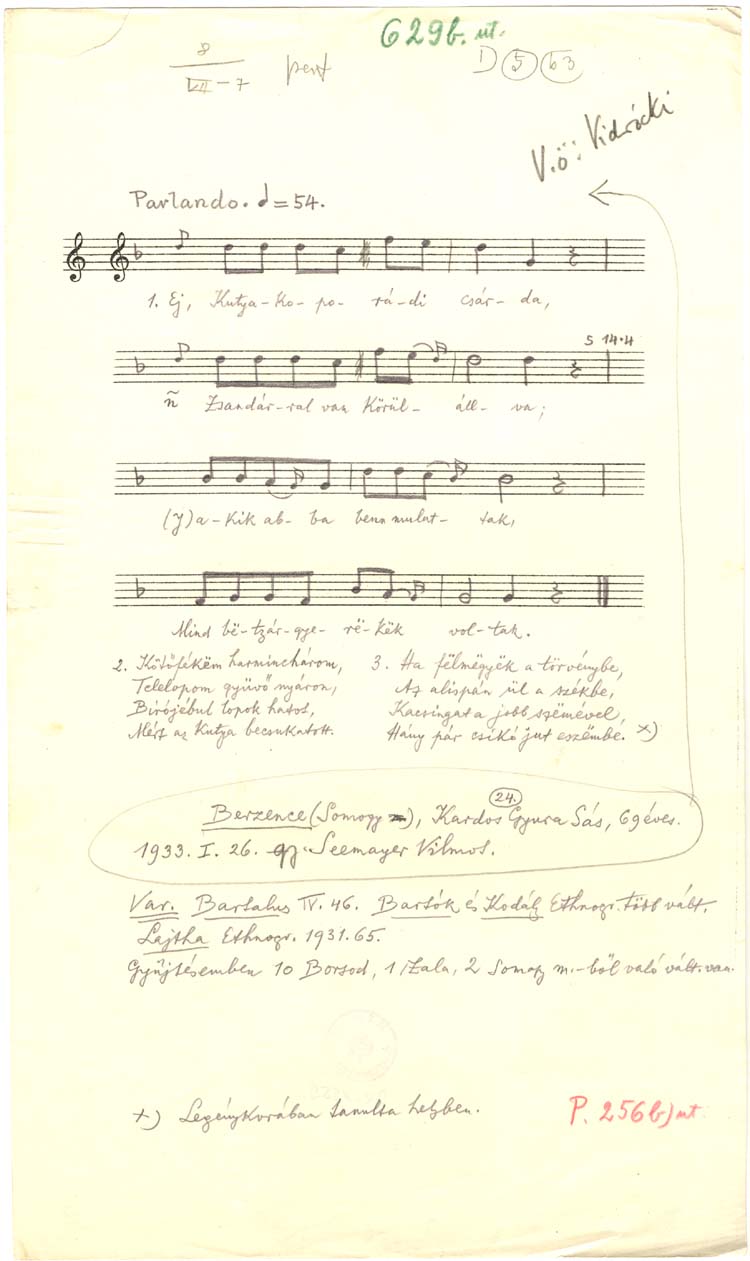 629b. ut.
8
VII-7 pent
D 5 63
V.ö: Vidrócki
Parlando. = 54.
1. Ej, Kutya-ko-po-rá-di csár-da,
5 14.4
ñ Zsandár-ral van körül-áll-va;
(J)a-kik ab-ba benn mulat-tak,
Mind bë-tyár-gye-rë-këk vol-tak.
2. Kötőfékëm harminchárom,
Telelopom gyüvő nyáron,
Birójébul lopok hatot,
Mért az kutya becsukatott.
3. Ha fëlmëgyëk a törvénybe,
Az alispán ül a székbe,
Kacsingat a jobb szëmével,
Hány pár csikó jut eszëmbe. x)
24.
Berzence (Somogy), Kardos Gyura Sás, 69 éves.
1933. I. 26. gy. Seemayer Vilmos.
Var. Bartalus IV. 46. Bartók és Kodály Ethnogr. több vált.
Lajtha Ethnogr. 1931. 65.
Gyűjtésemben 10 Borsod, 1 Zala, 2 Somogy m.-ből való vált. van.
x) Legénykorában tanulta helyben.
P. 256b) ut